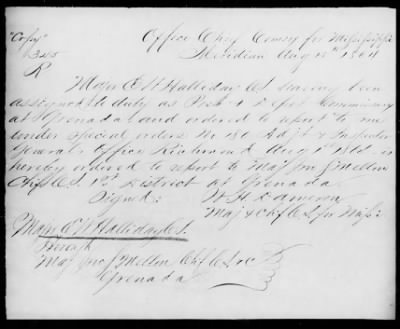 "Copy"
Office Chief Comsy for Mississippi
345
Meridian Aug 12th 1864
R
Major E. W. Halliday C.S. having been
assigned to duty as Post & Commissary
at Grenada and ordered to report to me
under Special orders No 180 Adjt & Inspector
General's Office Richmond Aug 1st 1864 is
hereby ordered to report to Maj Jno J Mellon
Chf C.S. 1st District at Grenada
Signed: W. H. Dameron
Maj & Chf C.S. for Miss:
Major E W Halliday C.S.
Through
Maj Jno J Mellon Chf C.S. &c
Grenada